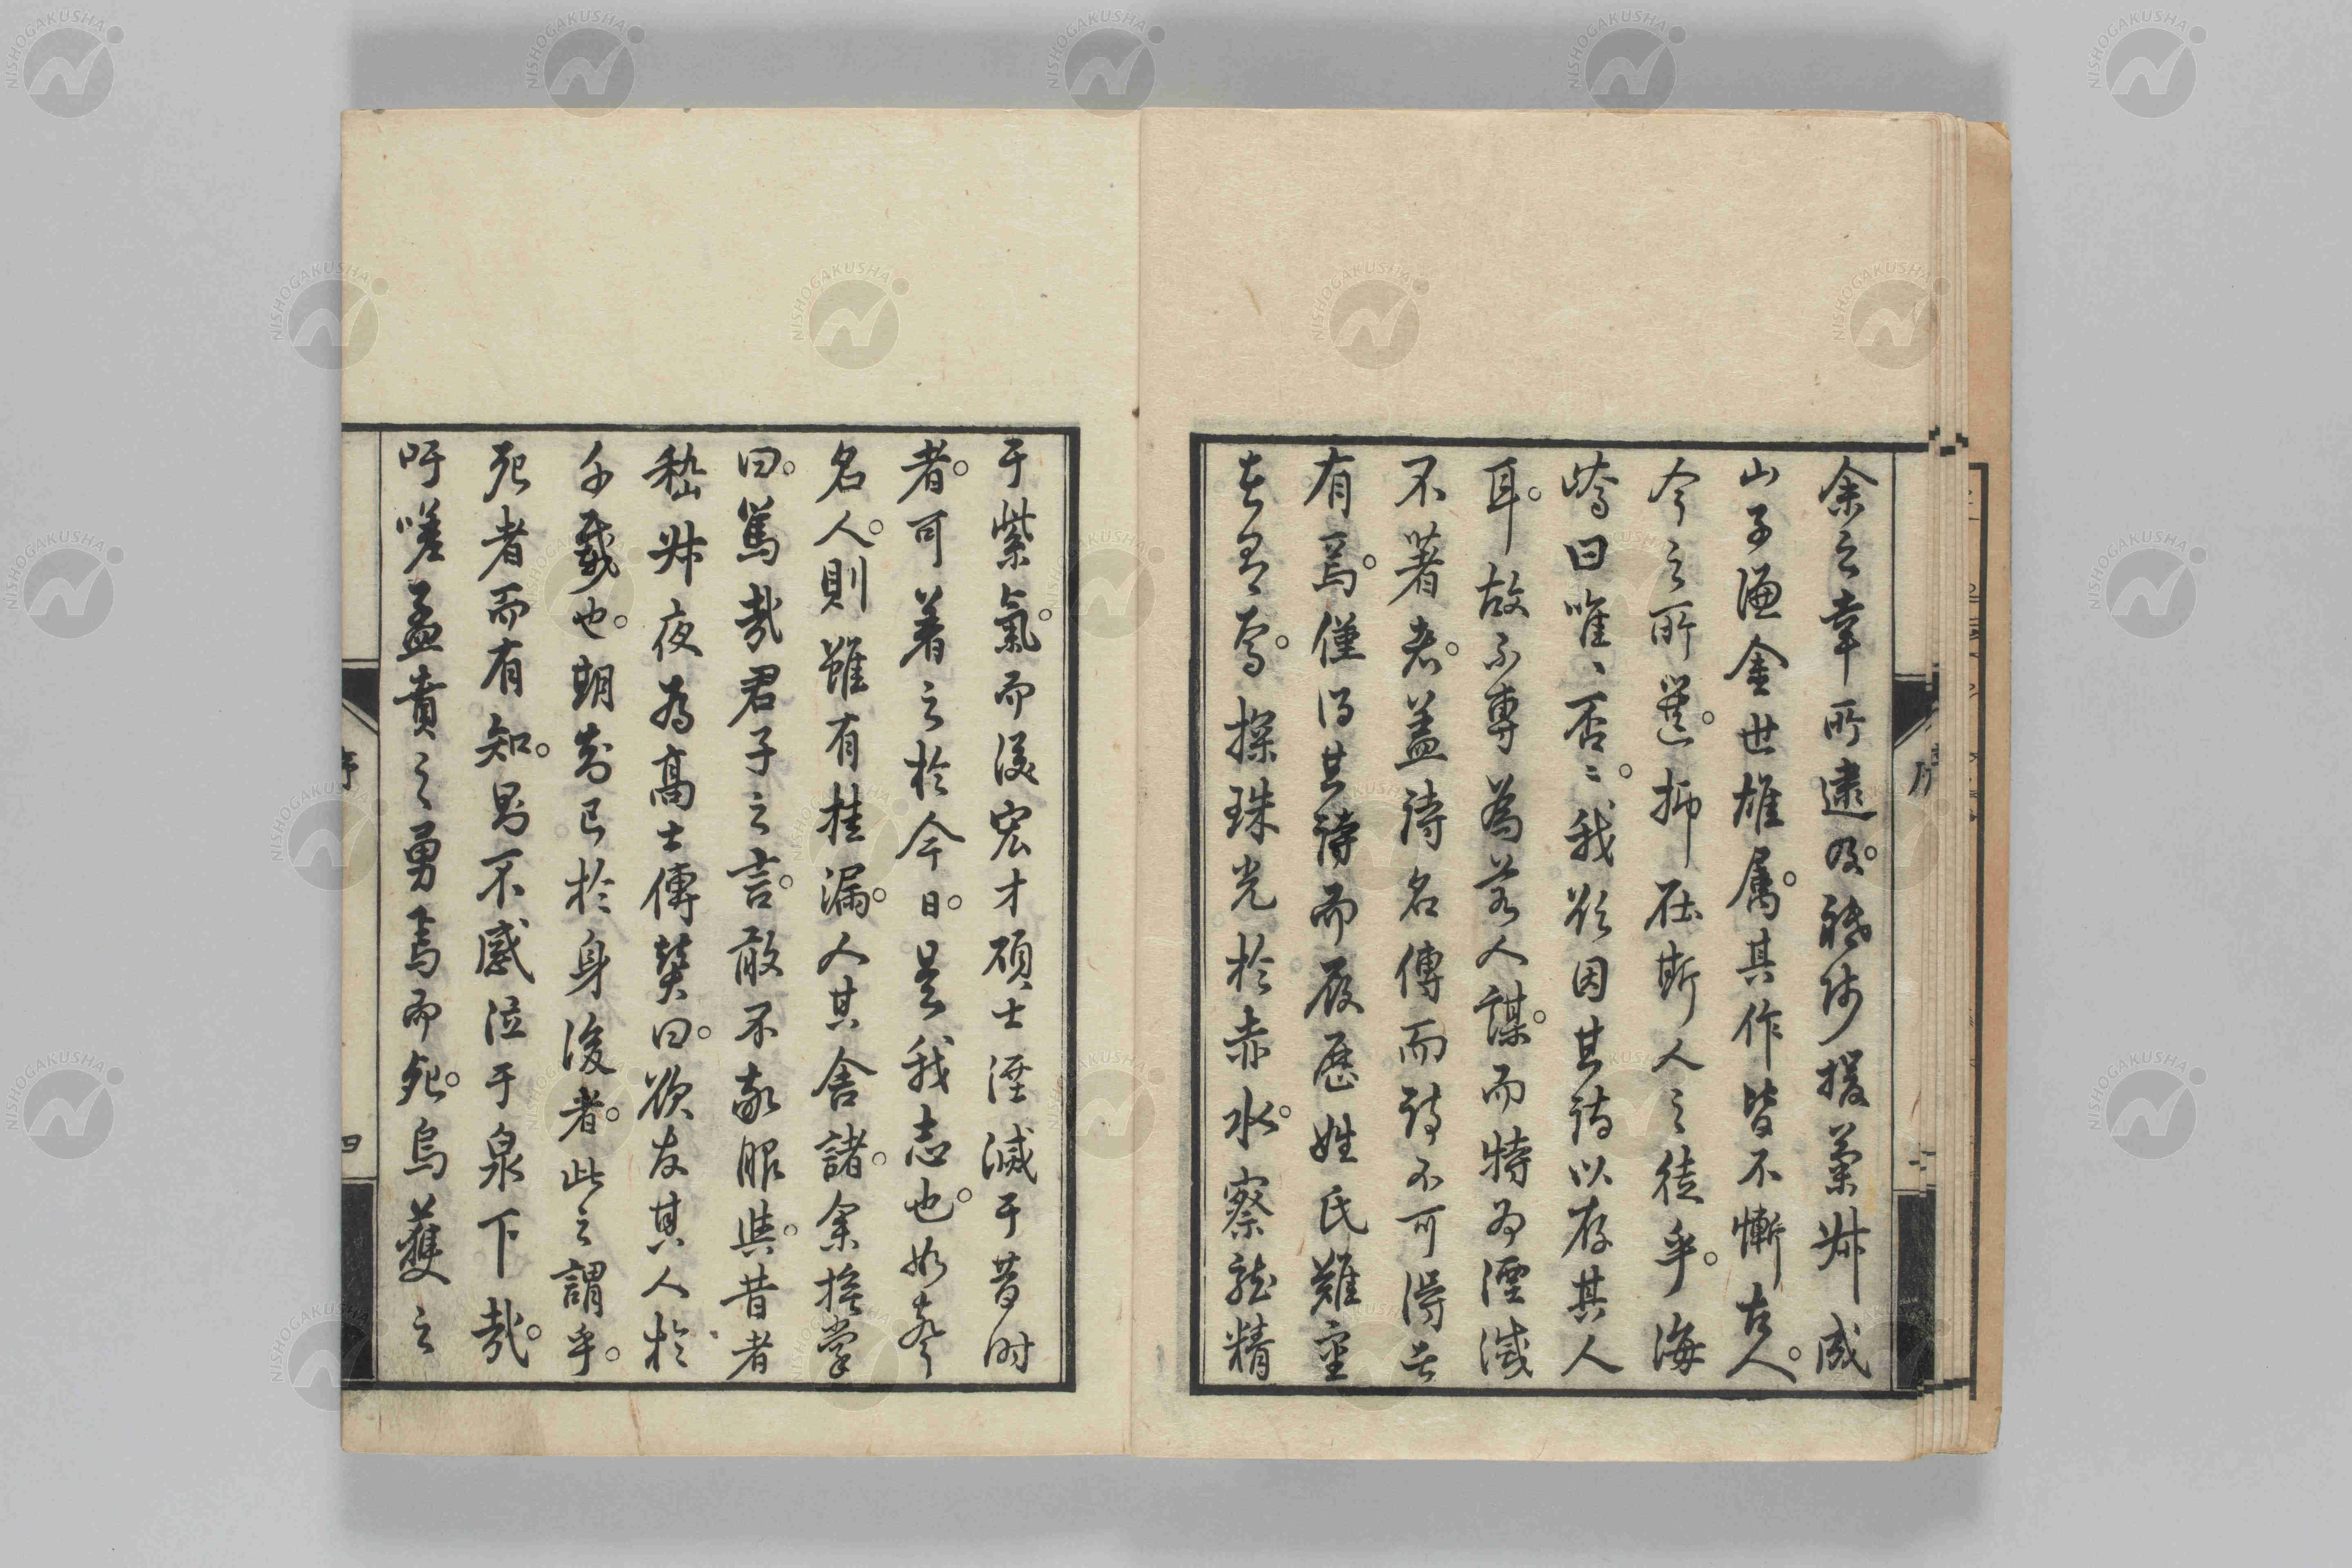 余之幸所逮及。祗役援藁卅成
山子濂金世雄屬。其作皆不慚古人。
今之所選。抑在斯人之徒乎。海
嶠曰唯唯否否。我欲因其詩以存其人
耳。故不專為若人謀。而特為湮滅
不著者。蓋詩名傳而詩不可得者
有焉。僅得其詩而履歷姓氏難量
者有焉。探珠光於赤水。察龍精
于紫氣。而後宏才碩士湮滅于昔時
者。可著之於今日。是我志也。如夸
名人。則雖有挂漏。人其舍諸。余撫掌
曰。篤哉君子之言。敢不敬服與。昔者
嵆叔夜為高士傳贊曰。欲友其人於
千載也。期
於身後者。此之謂乎。
死者而有知。曷不感泣于泉下哉。
吁嗟孟賁之勇焉而死。烏獲之
序
四
序
NISHOGAKUSHA